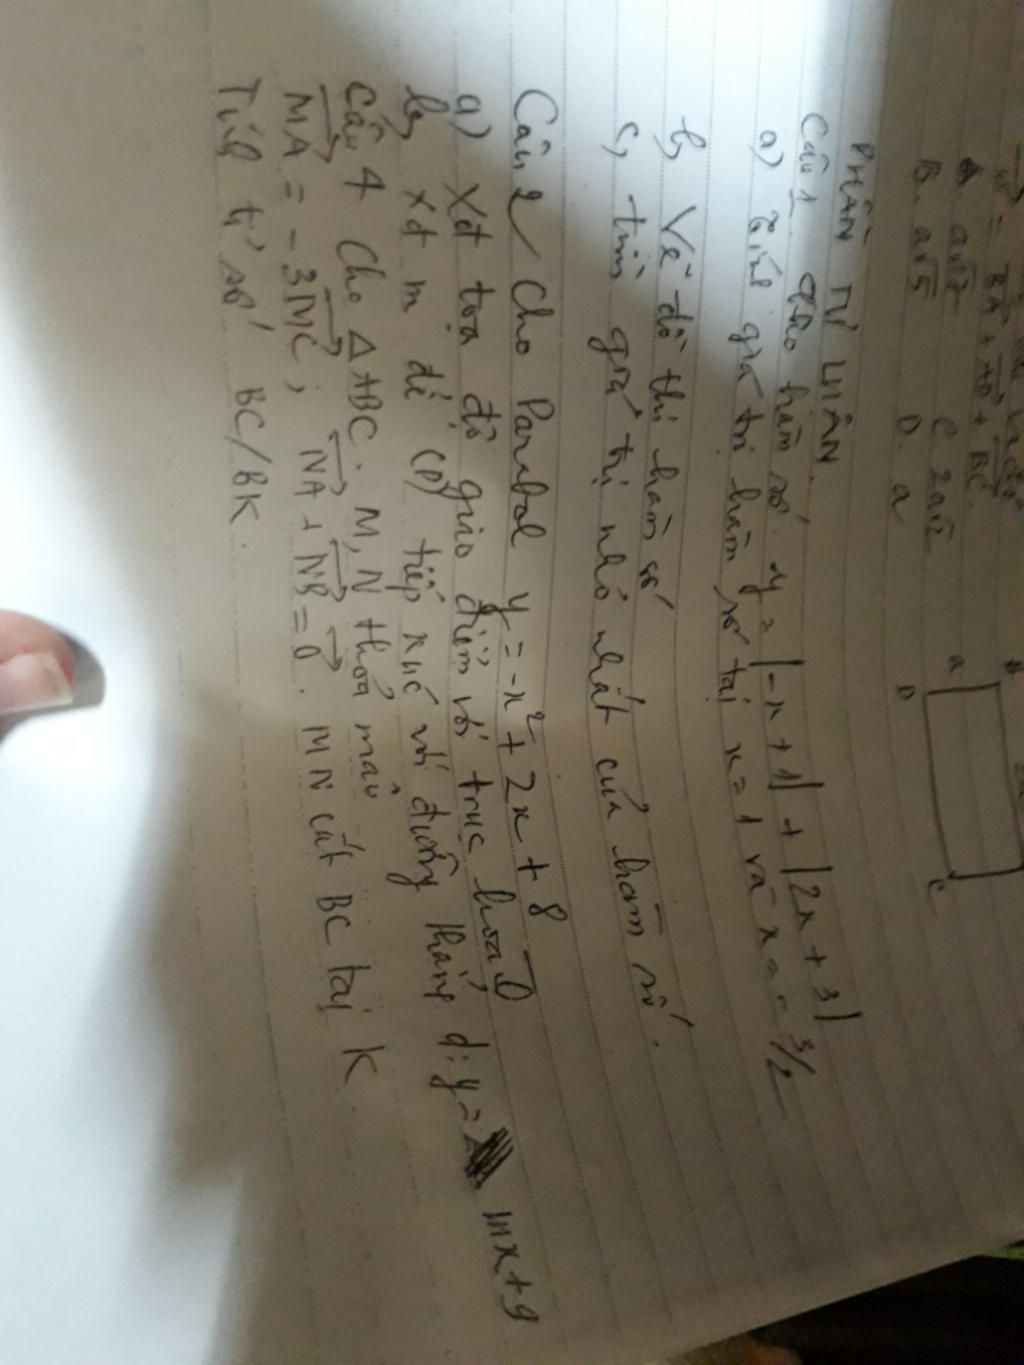 = BA + AD + BC
A a√17 C 2a√2
B. a√5 D. a
a
D C
PHẦN TỰ LUẬN.
Câu 1 Cho hàm số y = |-x + 1| + |2x + 3|
a) Tính giá trị hàm số tại x = 1 và x = - 3/2
b, Vẽ đồ thị hàm số
c, tìm giá trị nhỏ nhất của hàm số.
Câu 2/ Cho Parabol y = -x² + 2x + 8
a) Xđ tọa độ giao điểm với trục hoành
b, Xđ m để (P) tiếp xúc với đường thẳng d: y = mx + 9
Câu 4 Cho ΔABC. M, N thỏa mãn
MA = -3MC; NA + NB = 0. MN cắt BC tại K
Tính tỉ số BC/BK.